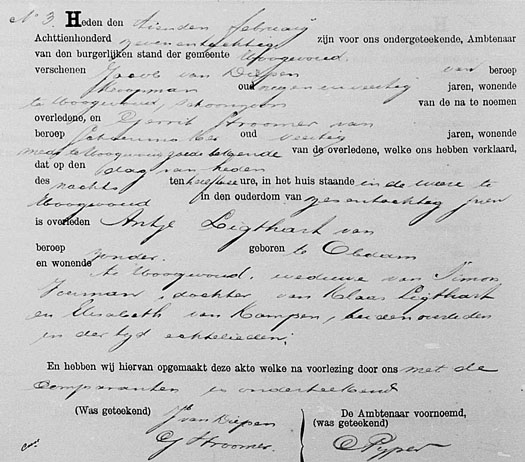 N° 3. Heden den tienden februarij
Achttienhonderd zevenentachtig zijn voor ons ondergeteekende, Ambtenaar
van den burgerlijken stand der gemeente Hoogwoud
verschenen Jacob van Diepen van beroep
koopman oud negenenveertig jaren, wonende
te Hoogwoud, schoonzoon van de na te noemen
overledene, en Gerrit Stroomer van
beroep oud veertig jaren, wonende
mede te Hoogwoud, goede bekende van de overledene, welke ons hebben verklaard,
dat op den dag van heden
des nachts ten ure, in het huis staande in de te
Hoogwoud in den ouderdom van zevenentachtig jaren
is overleden Antje Ligthart van
beroep zonder. geboren te Obdam
en wonende
te Hoogwoud, weduwe van Simon
dochter van Klaas Ligthart
en Elisabeth van Kampen, beiden overleden
in der tijd echtelieden;
En hebben wij hiervan opgemaakt deze akte welke na voorlezing door ons met de
Comparanten is onderteekend
(Was geteekend) Jb van Diepen De Ambtenaar voornoemd,
(was geteekend)
G Stroomer. C Pijper